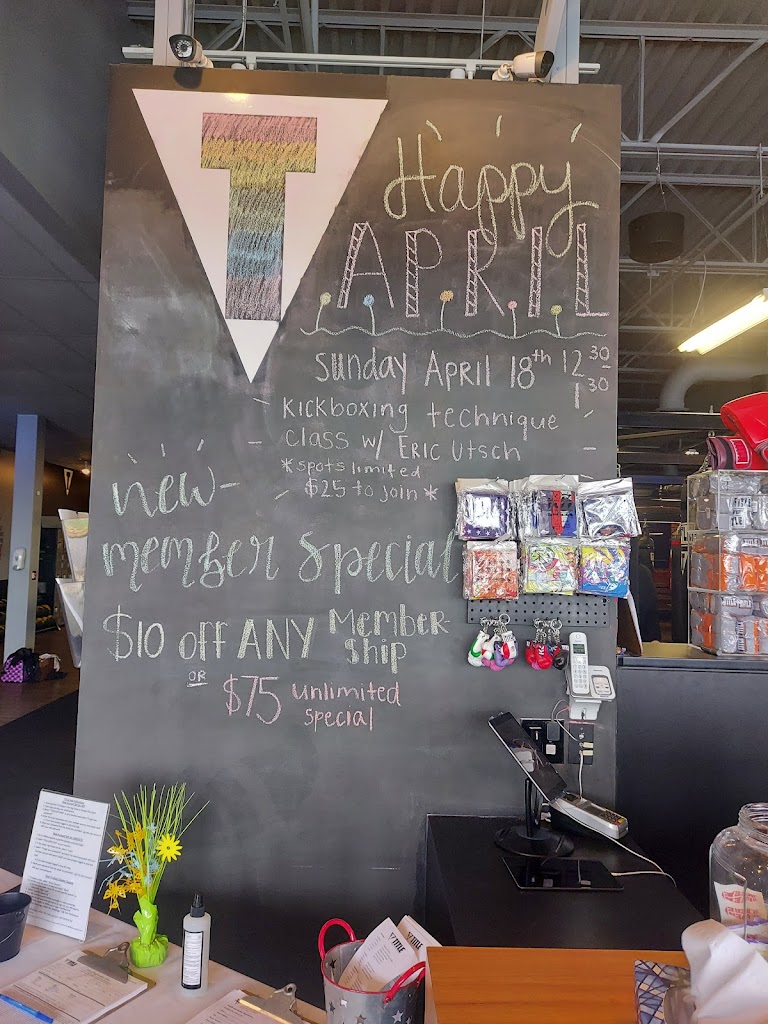 T
Happy
APRIL
Sunday April 18th 12 30 -
1 30
Kickboxing technique
class w/ Eric Utsch
*spots limited
$25 to join*
new-
member special
$10 off ANY Member-
ship
OR
$75 unlimited
special
TITLE